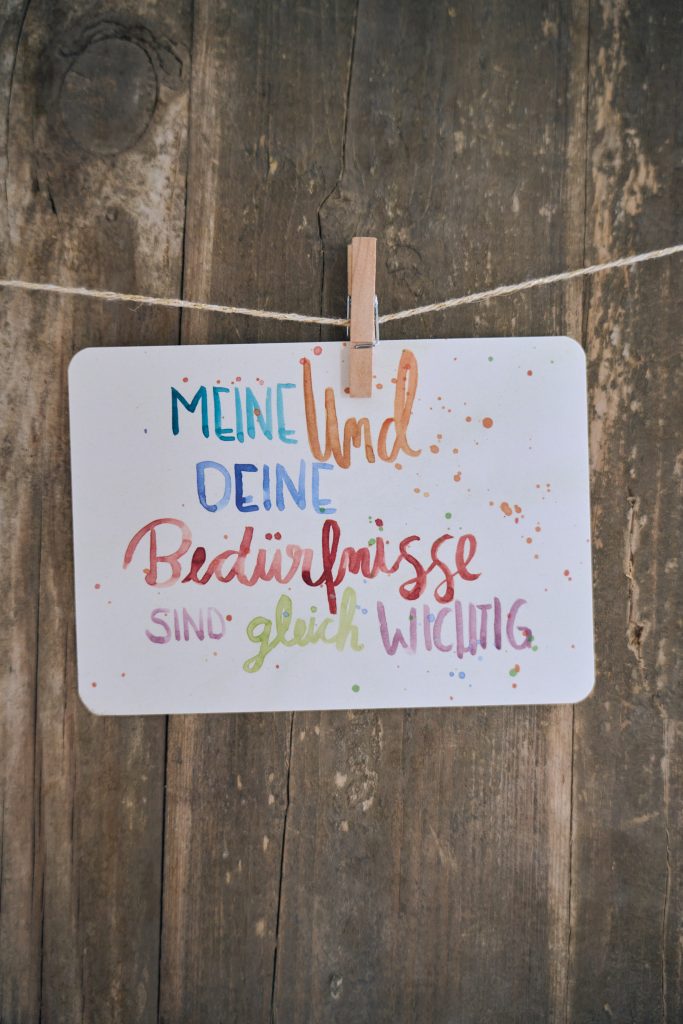 MEINE Und
DEINE
Bedürfnisse
SIND gleich WICHTIG